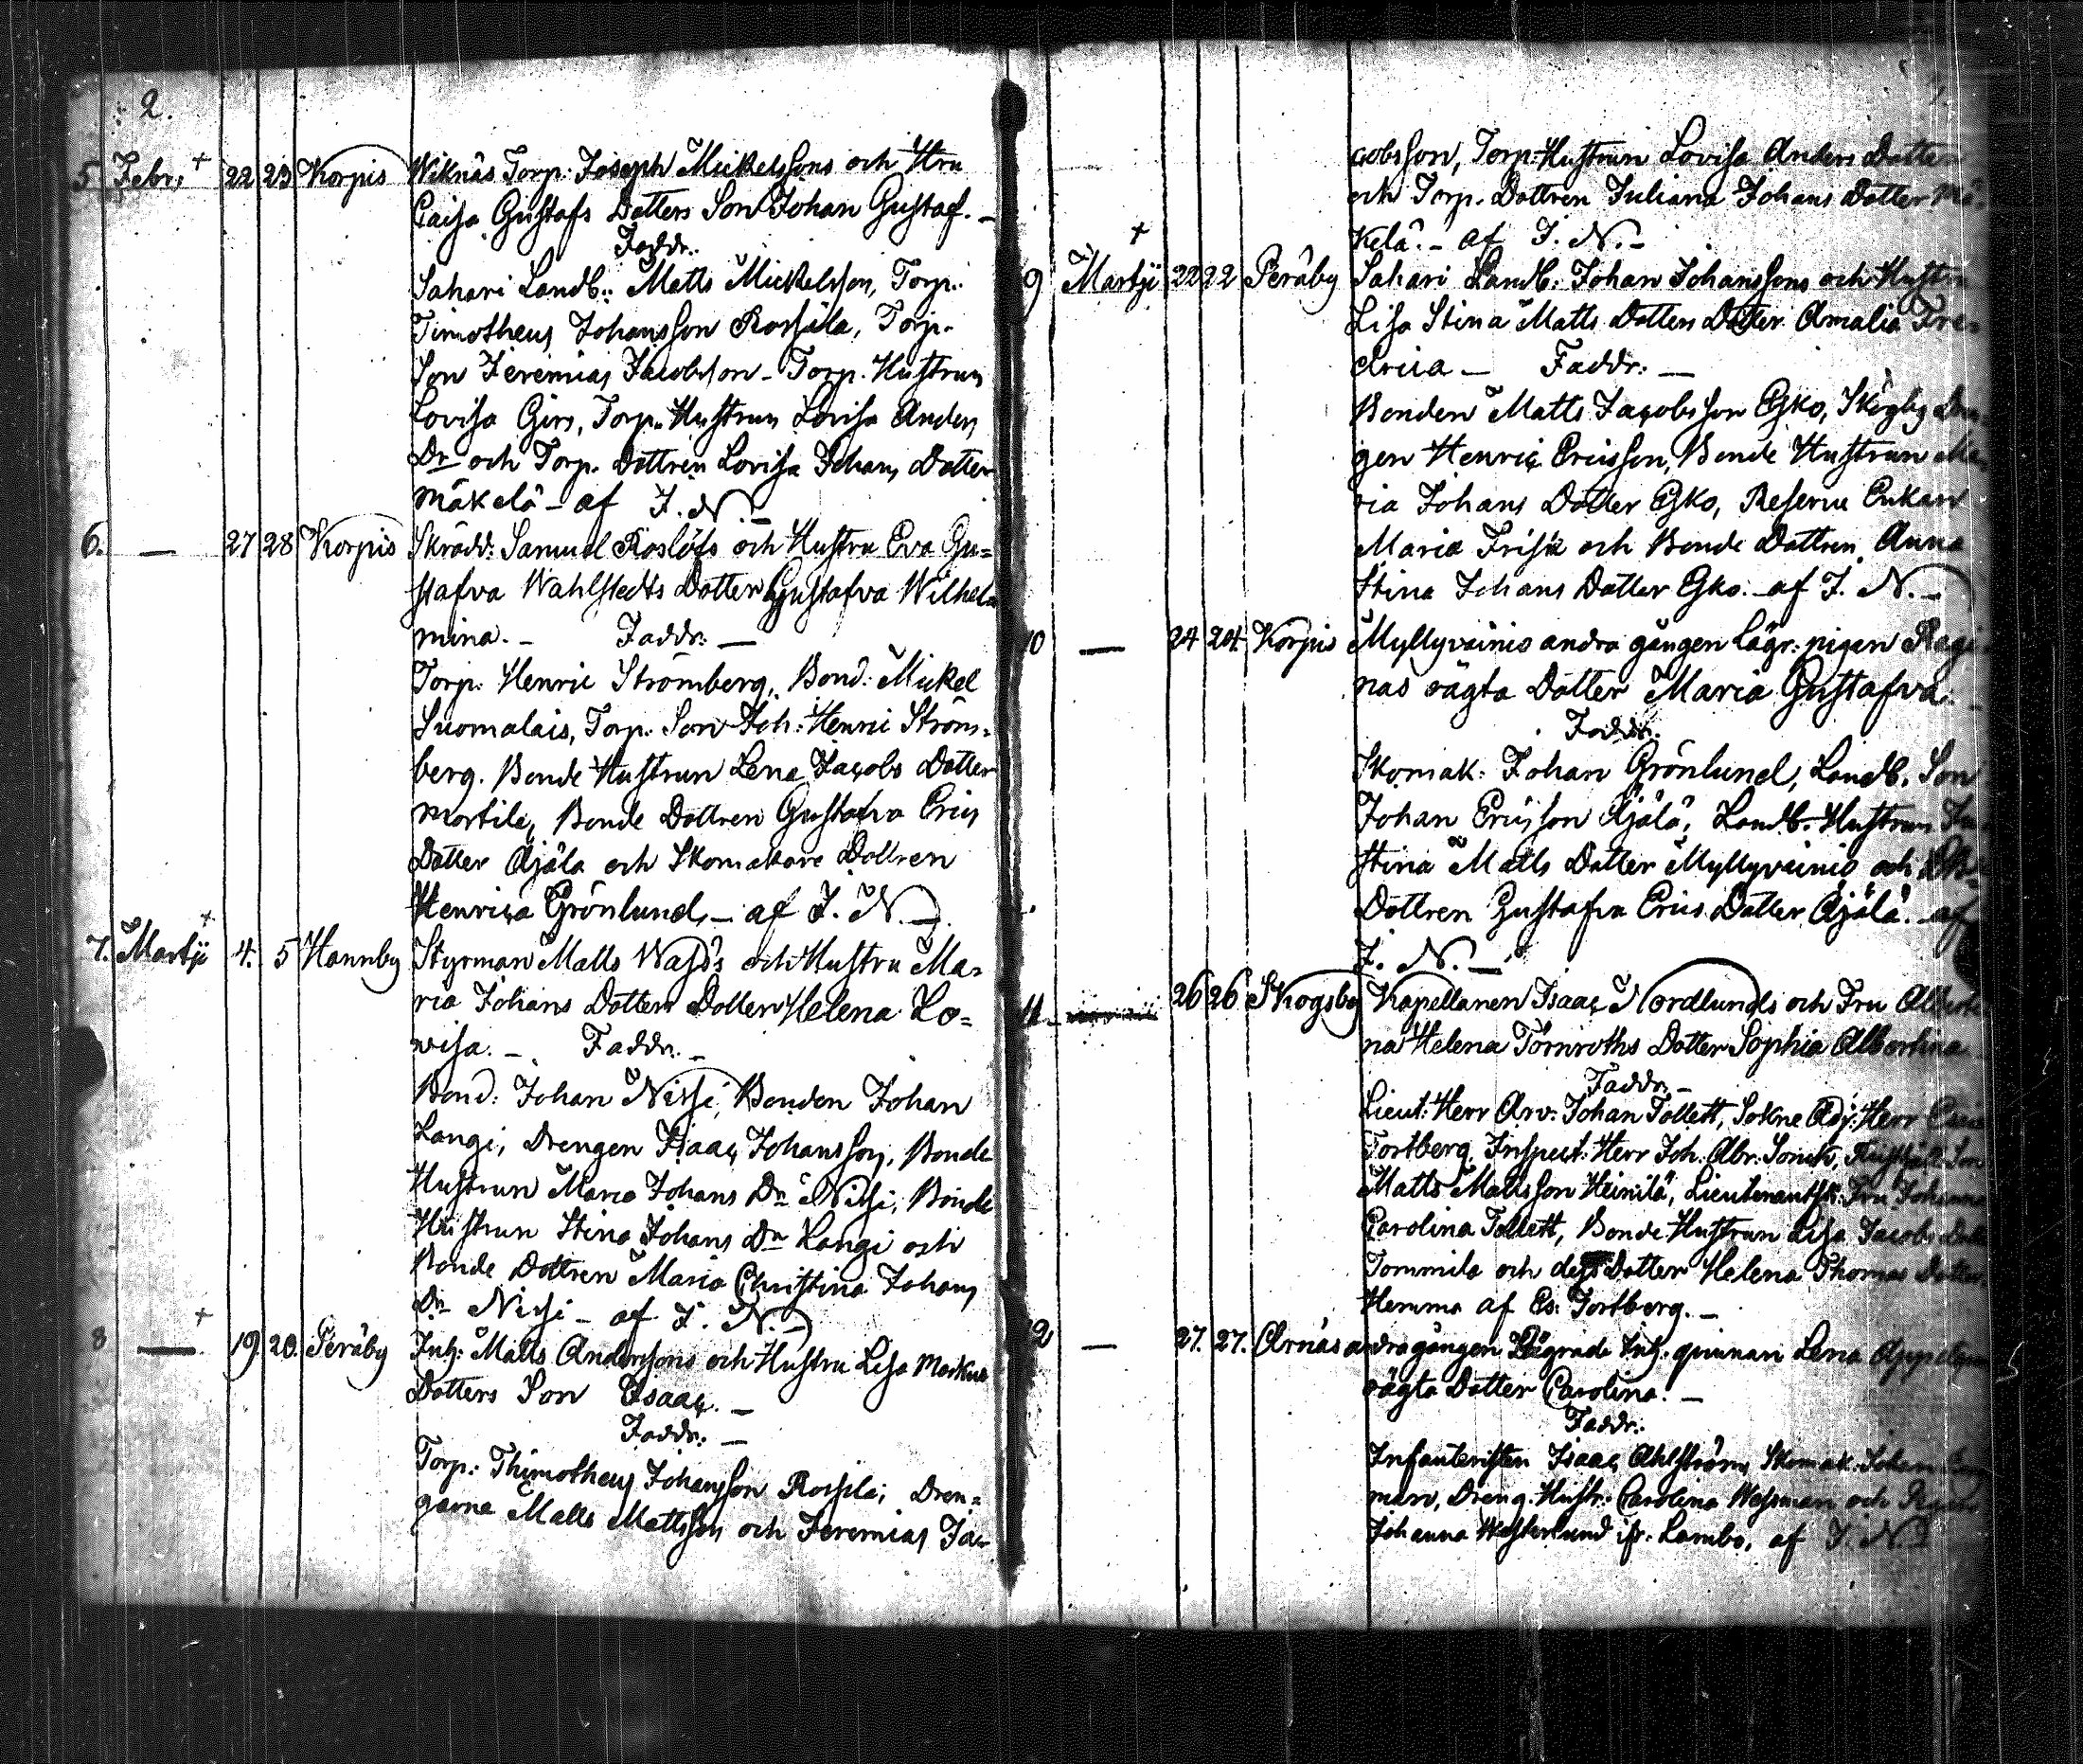 2.
5 Febr. + 22 23 Korpis Wiknäs Torp. Joseph Mickelssons och Hru
Caisa Gustafs Dotters Son Johan Gustaf. –
Faddr:
Sahari Landb: Matts Mickelsson, Torp.
Timotheus Johansson Rossila, Torp.
Son Jeremias Jacobsson – Torp. Hustrun
Lovisa Girs, Torp. Hustrun Lovisa Anders
Dr och Torp. Dottren Lovisa Johans Dotter
Mäkelä – af J. N. –
6. — 27 28 Korpis Skrädd: Samuel Roslöfs och Hustru Eva Gu=
stafva Wahlstedts Dotter Gustafva Wilhel
mina. – Faddr: —
Torp. Henric Strömberg, Bond: Mickel
Suomalais, Torp. Son Joh: Henric Ström=
berg. Bonde Hustrun Lena Jacobs Dotter
Mortila, Bonde Dottren Gustafva Erics
Dotter Äjälä och Skomakare Dottren
Henrica Grönlund, – af J. N. –
7. Martii + 4. 5 Hannby Styrman Matts Wass's och Hustru Ma=
ria Johans Dotters Dotter Helena Lo=
visa. – Faddr. –
Bond: Johan Nissi, Bonden Johan
Langi, Drengen Isaac Johansson, Bonde
Hustrun Maria Johans Dr Nissi, Bonde
Hustrun Stina Johans Dr Langi och
Bonde Dottren Maria Christina Johans
Dr Nissi – af J. N. –
8 — + 19. 20. Peräby Inh: Matts Anderssons och Hustru Lisa Markus
Dotters Son Isaac. –
Faddr: –
Torp: Thimotheus Johansson Rossila, Dren=
garne Matts Mattsson och Jeremias Ja=
cobsson, Torp: Hustrun Lovisa Anders Dotter
och Torp. Dottren Juliana Johans Dotter Mä=
kelä. – af J. N. –
9 Martii + 22 22 Peräby Sahari Landb: Johan Johanssons och Hustru
Lisa Stina Matts Dotters Dotter Amalia Fre=
drica – Faddr: —
Bonden Matts Jacobsson Esko, Skogby Dren
gen Henric Ericsson, Bonde Hustrun Ma
ria Johans Dotter Esko, Reserve Enkan
Maria Frisk och Bonde Dottren Anna
Stina Johans Dotter Esko. – af J. N. –
10 — 24 24. Korpis Myllyvainio andra gången lägr: pigan Regi
nas oägta Dotter Maria Gustafva. –
Faddr.
Skomak: Johan Grönlund, Landb. Son
Johan Ericsson Äjälä, Landb. Hustrun
Stina Matts Dotter Myllyvainio och
Dottren Gustafva Erics Dotter Äjälä. – af
J. N. –
11. 26 26 Skogsby Kapellanen Isaac Nordlunds och Fru Alberti
na Helena Törnroths Dotter Sophia Albertina
Faddr –
Lieut: Herr Arv: Johan Tollett, Sokne Adj: Herr
Tortberg, Inspect: Herr Joh. Abr. Sonck, Son
Matts Mattsson Heinilä, Lieutenantsk: Fru Johanna
Carolina Tollett, Bonde Hustrun Lisa Jacobs Dotter
Tommila och dess Dotter Helena Thomas Dotter
Hemma af Es: Tortberg. –
12 — 27. 27. Arnäs andra gången Lägrade Inh. quinnan Lena Appelgren
oägta Dotter Carolina. –
Faddr:
Infanteristen Isaac Ahlström, Skomak. Johan
man, Dreng. Hustr: Carolina Wessman och Pigan
Johanna Westerlund ifr. Lambo, af J. N.